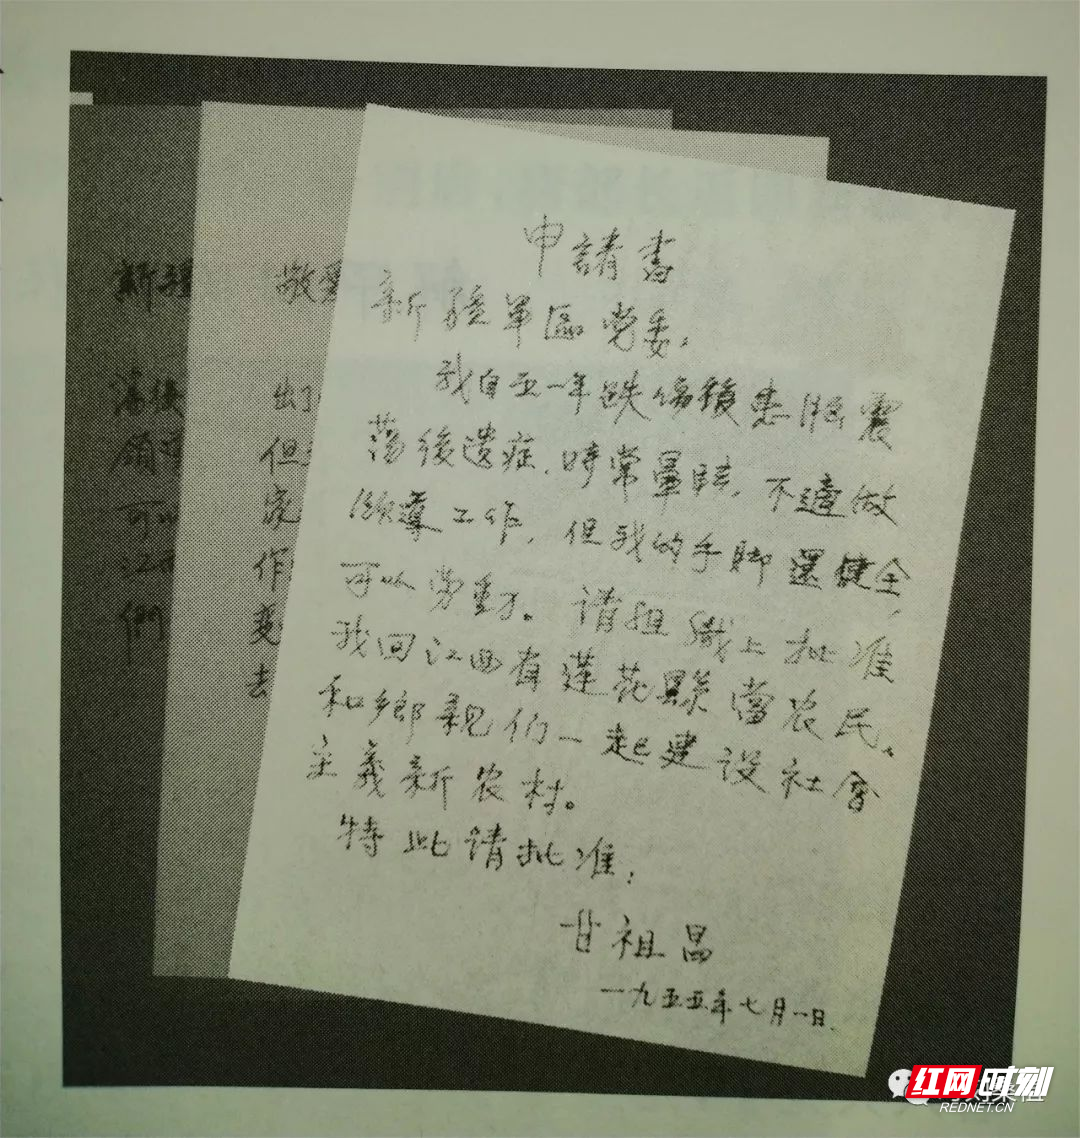 申請书
新疆军區党委.
我自五一年跌伤後患脑震
荡後遗症.時常暈眩.不適做
领導工作.但我的手脚還健全,
可以劳動。请组織上批准
我回江西省莲花縣當农民.
和鄉親们一起建设社会
主義新农村。
特此请批准;
甘祖昌
一九五五年七月一日.
敬
出
但
作
变
去
荡後
可以
們
红网时刻
REDNET.CN